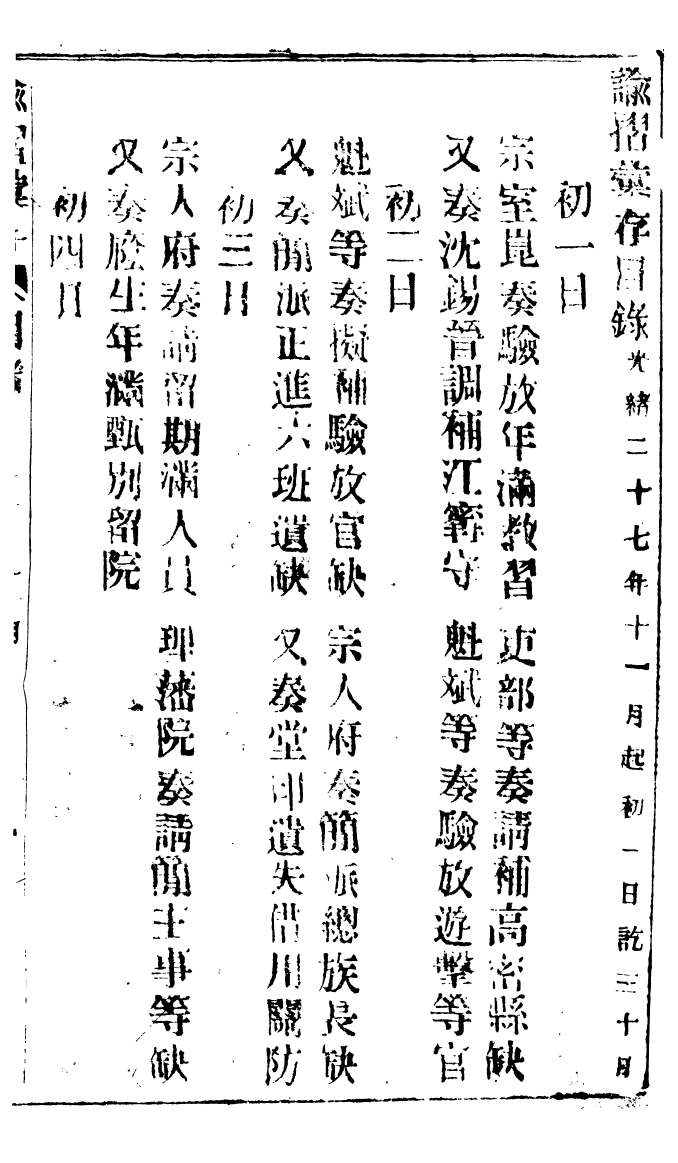 諭摺彙存目錄光緒二十七年十一月起初一日訖三十日
初一日
宗室崑奏驗放年滿教習　吏部等奏請補高密縣缺
又奏沈錫晉調補江寧守　魁斌等奏驗放遊擊等官
初二日
魁斌等奏擬補驗放官缺　宗人府奏簡派總族長缺
又奏簡派正進六班遺缺　又奏堂印遺失借川關防
初三日
宗人府奏請留期滿人員　理藩院奏請簡主事等缺
又奏廕生年滿甄別留院
初四日